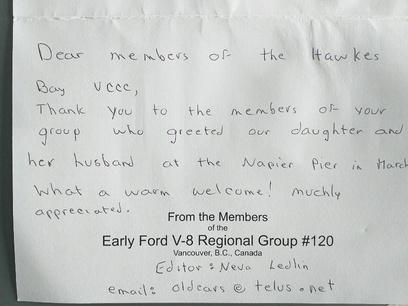 Dear members of the Hawkes
Bay VCCC,
Thank you to the members of your
group who greeted our daughter and
her husband at the Napier Pier in March
What a warm welcome! muchly
appreciated.
From the Members
of the
Early Ford V-8 Regional Group #120
Vancouver, B.C., Canada
Editor: Neva Ledlin
email: oldcars@telus.net